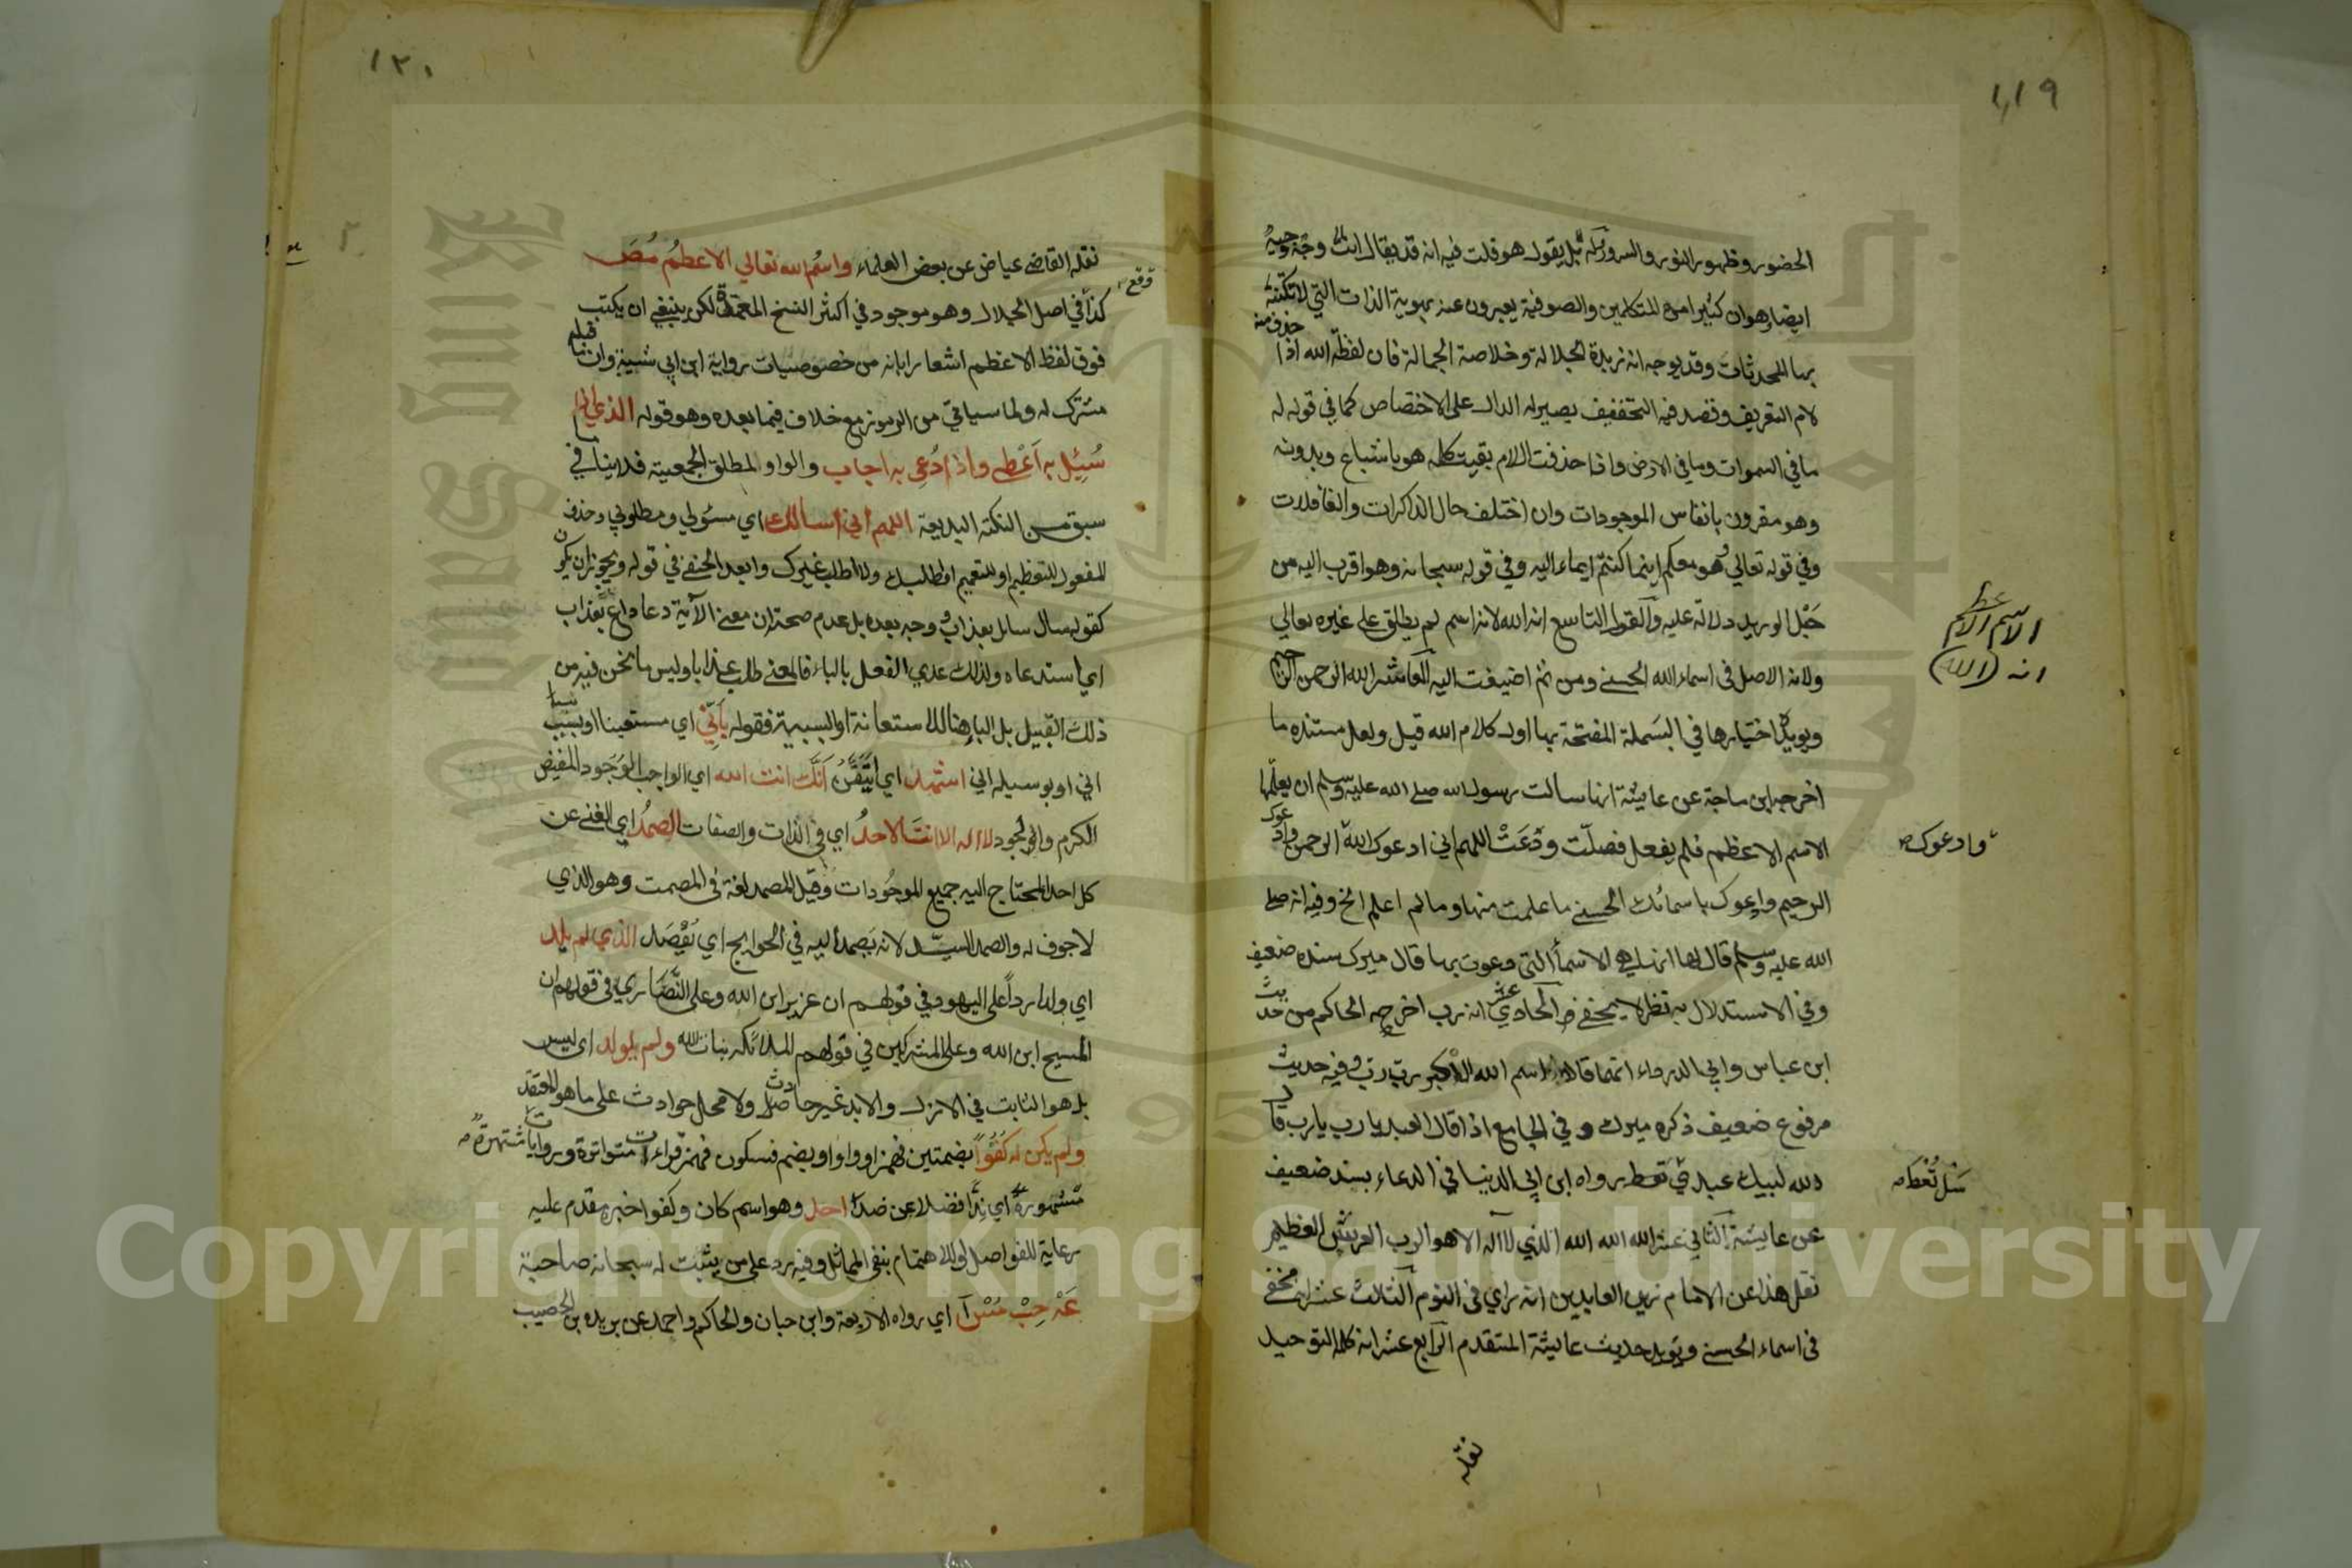 ١١٩
الحضور وظهور النور والسرور بل يقول هو قلت فيه انه قد يقال انت
ايضا وهو ان كثيرا من المتكلمين والصوفية يعبرون عنه بهوية الذات التي لا
بها المحدثات وقد يوجه انه زبدة الجلالة وخلاصة الجمالة فان لفظة الله اذا حذف منه
لام التعريف وقصد فيه التخفيف يصير له الدال على الاختصاص كما في قوله له
ما في السموات وما في الارض واذا حذفت اللام بقيت كلمه هو باشباع وبدونه
وهو مقرون بانفاس الموجودات وان اختلف حال الذاكرات والغافلات
وفي قوله تعالى هو معكم اينما كنتم ايماء اليه وفي قوله سبحانه وهو اقرب اليه من
حبل الوريد دلالة عليه والقول التاسع انه الله لانه اسم لم يطلق على غيره تعالي
ولانه الاصل في اسماء الله الحسنى ومن ثم اضيفت اليه العاشر الله الرحمن الرحيم
ويؤيد اختيارها في البسملة المفتحة بها اول كلام الله قيل ولعل مستنده ما
اخرجه ابن ماجة عن عايشة انها سالت رسول الله صلى الله عليه وسلم ان يعلمها
الاسم الاعظم فلم يفعل فصلت ودعت اللهم اني ادعوك الله الرحمن وادعوك
الرحيم وادعوك باسمائك الحسنى ما علمت منها وما لم اعلم الخ وفيه انه صلى
الله عليه وسلم قال لها انه لهي الاسماء التي دعوت بها قال ميرك سنده ضعيف
وفي الاستدلال به نظر لا يخفى الحادي عشر انه رب اخرجه الحاكم من حديث
ابن عباس وابي الدرداء انهما قالا اسم الله الاكبر رب رب وفيه حديث
مرفوع ضعيف ذكره ميرك وفي الجامع اذا قال العبد يا رب يا رب قال
الله لبيك عبدي تعط رواه ابن ابي الدنيا في الدعاء بسند ضعيف
عن عايشة الثاني عشر الله الله الله الذي لا اله الا هو الرب العرش العظيم
نقل هذا عن الامام زين العابدين انه راي في النوم الثالث عشر انه مخفى
في اسماء الحسنى ويؤيد حديث عايشة المتقدم الرابع عشر انه كلمة التوحيد
نقله
الاسم الاعظم
انه (الله)
وادعوك
سل تعط
١٢٠
نقله القاضي عياض عن بعض العلماء واسم الله تعالي الاعظم مص
وقع
كذا في اصل الجلال وهو موجود في اكثر النسخ المعتمدة لكن ينبغي ان يكتب
فوق لفظ الاعظم اشعارا بانه من خصوصيات رواية ابن ابي شيبة وان ما قبله
مشترك له ولما سياتي من الرموز مع خلاف فيما بعده وهو قوله الذي اذا
سئل به اعطى واذا دعي به اجاب والواو لمطلق الجمعية فلا ينافي
سبق من النكتة البديعة اللهم اني اسالك اي مسئولي ومطلوبي وحذف
المفعول للتعظيم او للتعميم اطلبك ولا اطلب غيرك وابعد الحنفي في قوله ويجوز ان يكون
كقوله سال سائل بعذاب وجه بعده بل عدم صحته ان معنى الآية دعا داع بعذاب
اي استدعاه ولذلك عدي الفعل بالباء فالمعنى طلب عذابا وليس ما نحن فيه من
ذلك القبيل بل الباء هنا للاستعانة او السببية فقوله باني اي مستعينا او بسبب
اني او بوسيلة اني اشهد اي اتيقن انك انت الله اي الواجب الوجود المفيض
الكرم والجود لا اله الا انت الاحد اي في الذات والصفات الصمد اي الغني عن
كل احد المحتاج اليه جميع الموجودات وقيل الصمد لغة في المصمت وهو الذي
لا جوف له والصمد السيد لانه يصمد اليه في الحوايج اي يقصد الذي لم يلد
اي ولدا ردا على اليهود في قولهم ان عزير ابن الله وعلى النصاري في قولهم ان
المسيح ابن الله وعلى المشركين في قولهم الملائكة بنات الله ولم يولد اي ليس
بل هو الثابت في الازل والابد غير حادث ولا محل حوادث على ما هو المعتقد
ولم يكن له كفوا بضمتين فهمز او واو او بضم فسكون فهمز قراءات متواترة وروايات مشتهرة
مشهورة اي ندا فضلا عن ضد احد وهو اسم كان وكفوا خبره مقدم عليه
رعاية للفواصل او للاهتمام بنفي المماثل وفيه رد على من يثبت له سبحانه صاحبة
عه حب مس ا اي رواه الاربعة وابن حبان والحاكم واحمد عن بريدة بن الحصيب
Copyright © King Saud University
King Saud University
جامعة الملك سعود
1957